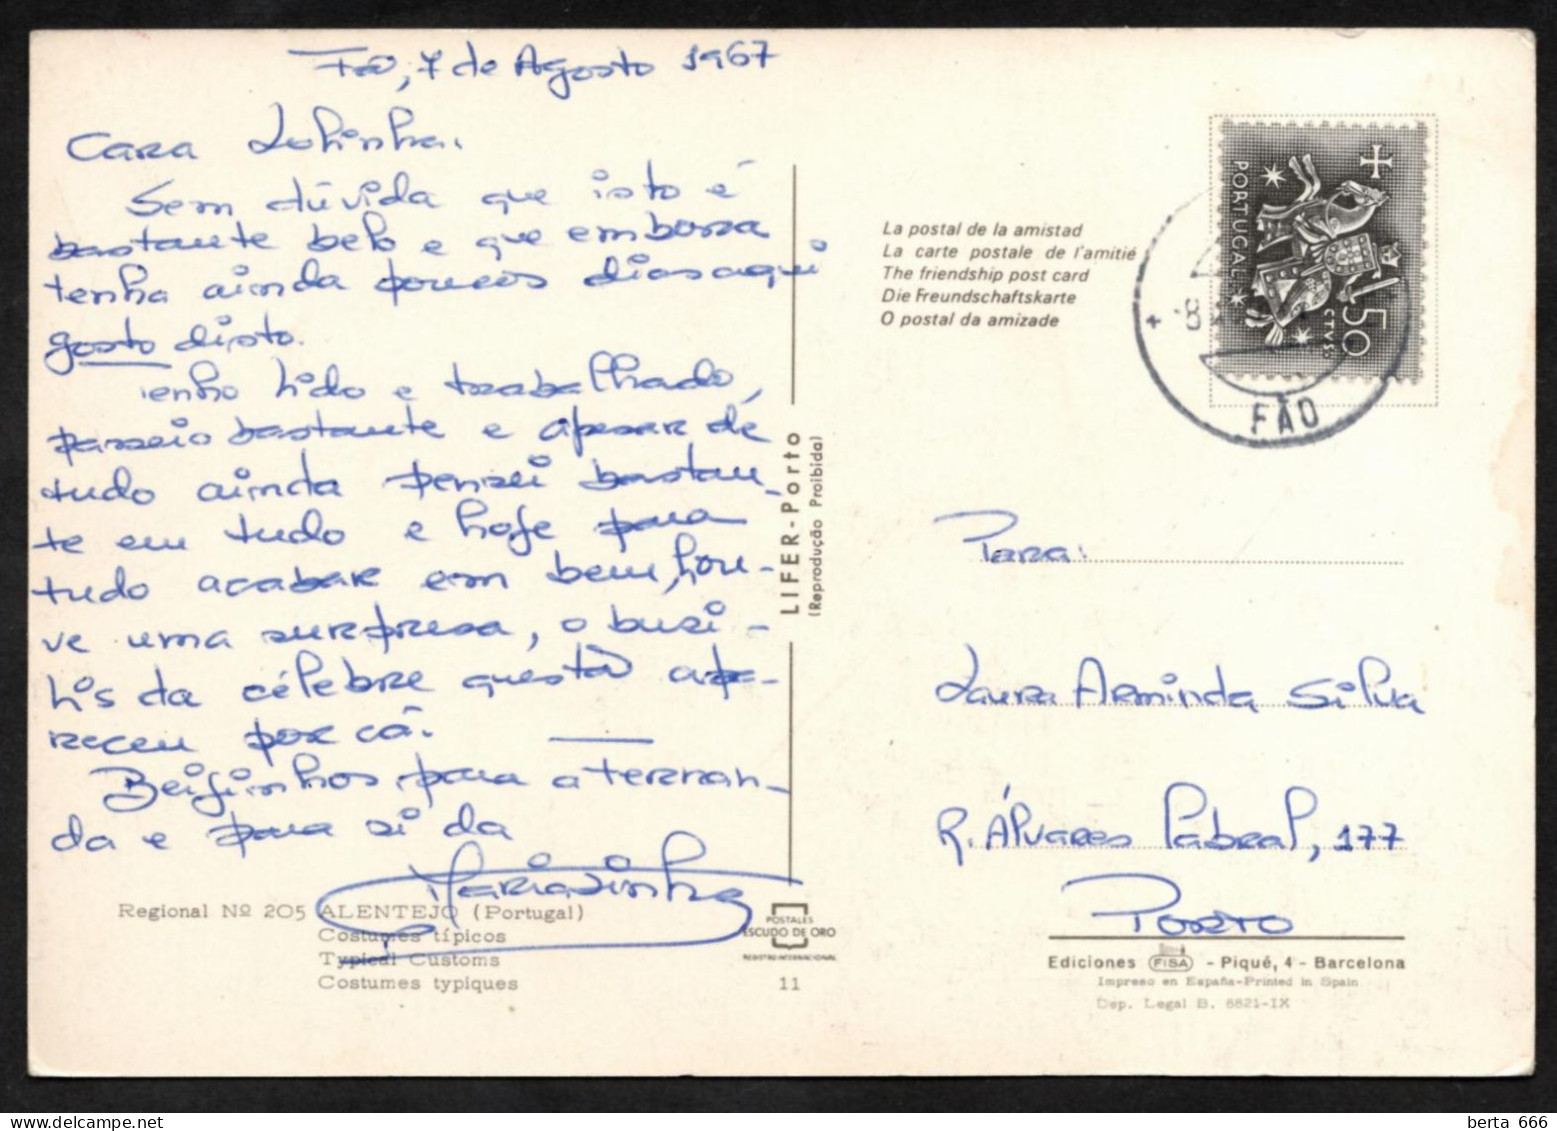 Fão, 7 de Agosto 1967
Cara Lolinha.
Sem dúvida que isto é
bastante belo e que embora
tenha ainda poucos dias aqui
gosto disto.
Tenho lido e trabalhado,
passeio bastante e apesar de
tudo ainda pensei bastan-
te em tudo e hoje para
tudo acabar em bem, hou-
ve uma surpresa, o busi-
lis da célebre questão apa-
receu por cá.
Beijinhos para a Fernan-
da e para si da
Regional Nº 205 ALENTEJO (Portugal)
Costumes típicos
Typical Customs
Costumes typiques
11
POSTALES
ESCUDO DE ORO
REGISTRO INTERNACIONAL
LIFER-Porto
(Reprodução Proibida)
La postal de la amistad
La carte postale de l'amitié
The friendship post card
Die Freundschaftskarte
O postal da amizade
PORTUGAL
CTVS
50
FÃO
Para:
Laura Arminda Silva
R. Álvares Cabral, 177
Porto
Ediciones FISA - Piqué, 4 - Barcelona
Impreso en España-Printed in Spain
Dep. Legal B. 6821-IX
berta 666